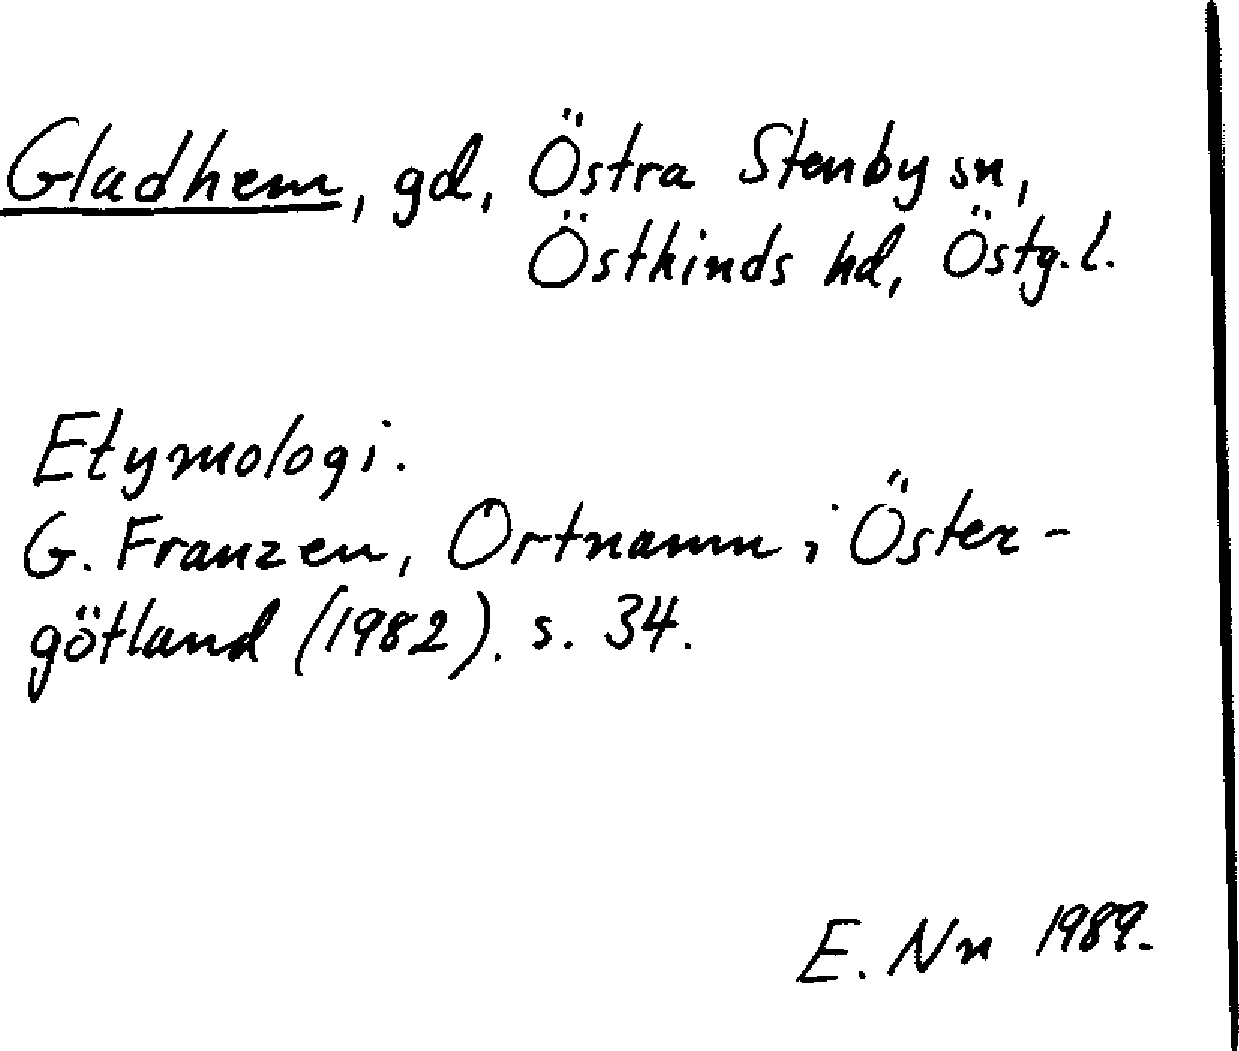 Gladhem, gd, Östra Stenby sn,
Östkinds hd, Östg.l.
Etymologi.
G. Franzen, Ortnamn i Öster-
götland (1982). s. 34.
E. Nn 1989.